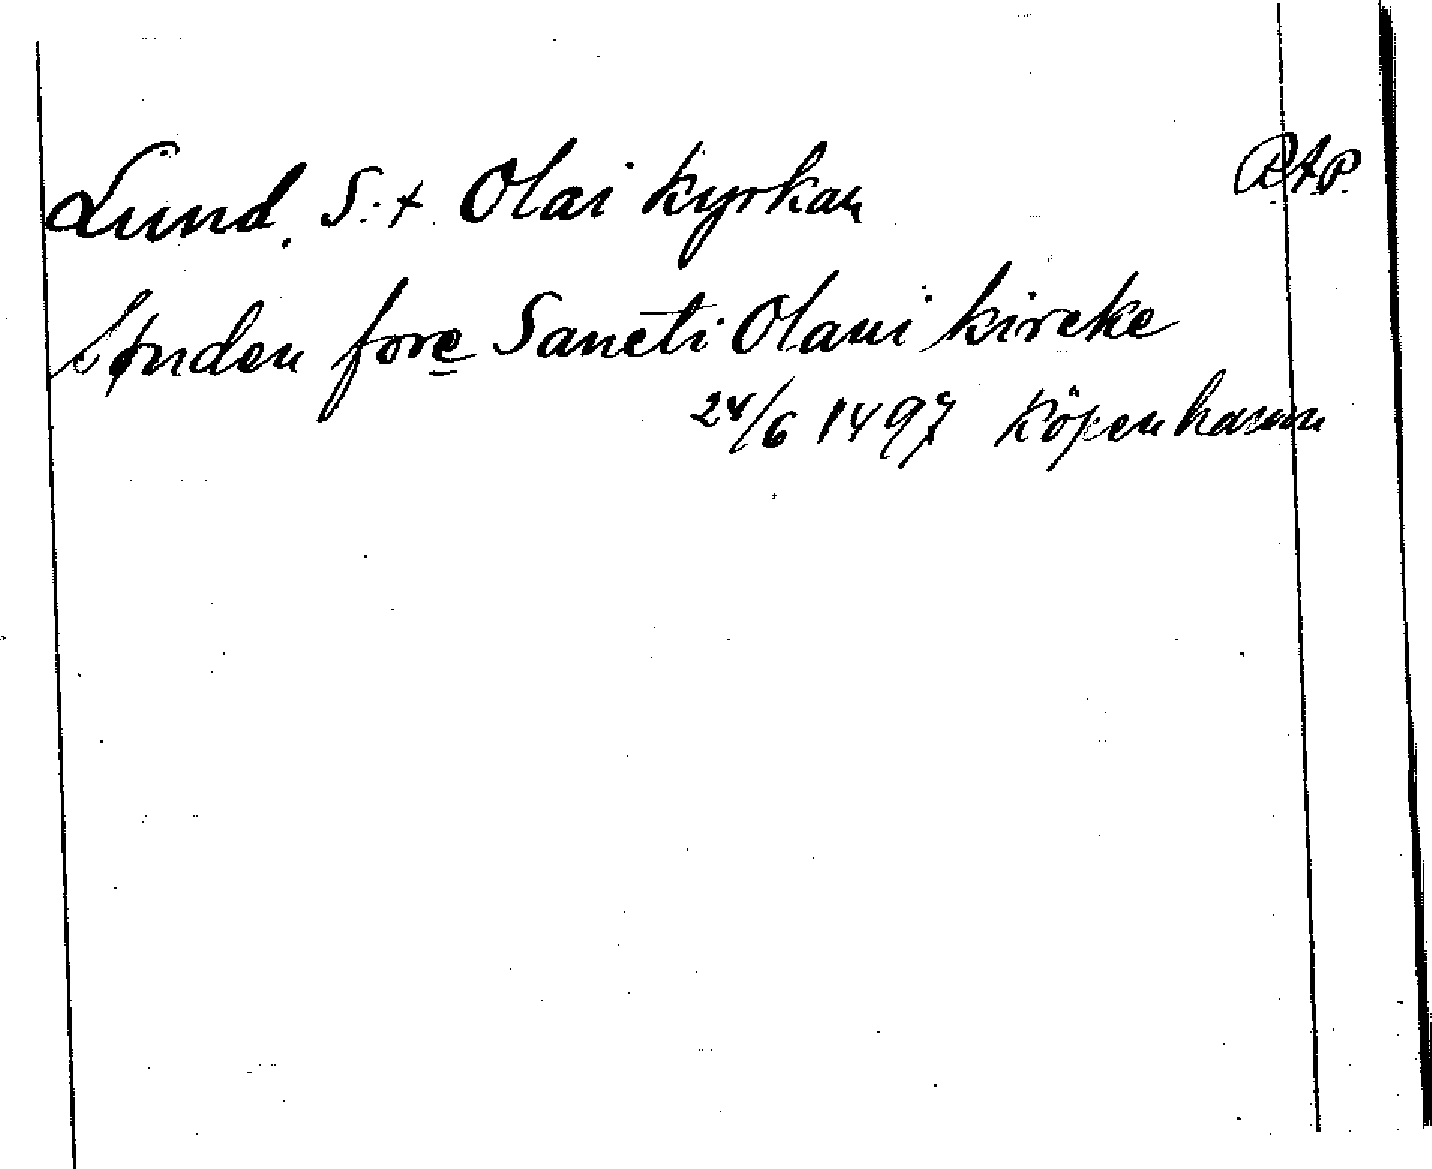 Lund. S:t Olai kyrkan RAP.
Sønden fore Sancti Olaui kircke
24/6 1497 Köpenhamn